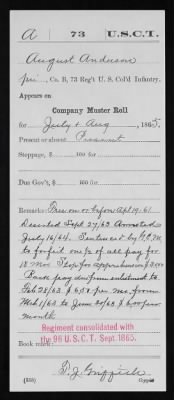 A 73 U.S.C.T.
August Anderson
pri, Co. B, 73 Reg't U. S. Col'd Infantry.
Appears on
Company Muster Roll
for July & Aug, 1865.
Present or absent Present
Stoppage, $ 100 for
Due Gov't, $ 100 for
Remarks: Free on or before Apl 19. 61
Deserted Sept 27/63 Arrested
July 16/64. Sentenced by G.C.M.
to forfeit one ½ of all pay for
18 Mos. Stop for apprehension $30.00
Back pay due from enlistment to
Feb 28/63 @ $6.50 per mo from
Mch 1/63 to June 30/63 @ $6.00 per
month
Regiment consolidated with
the 96 U.S.C.T. Sept. 1865.
Book mark:
(358)
Copyist